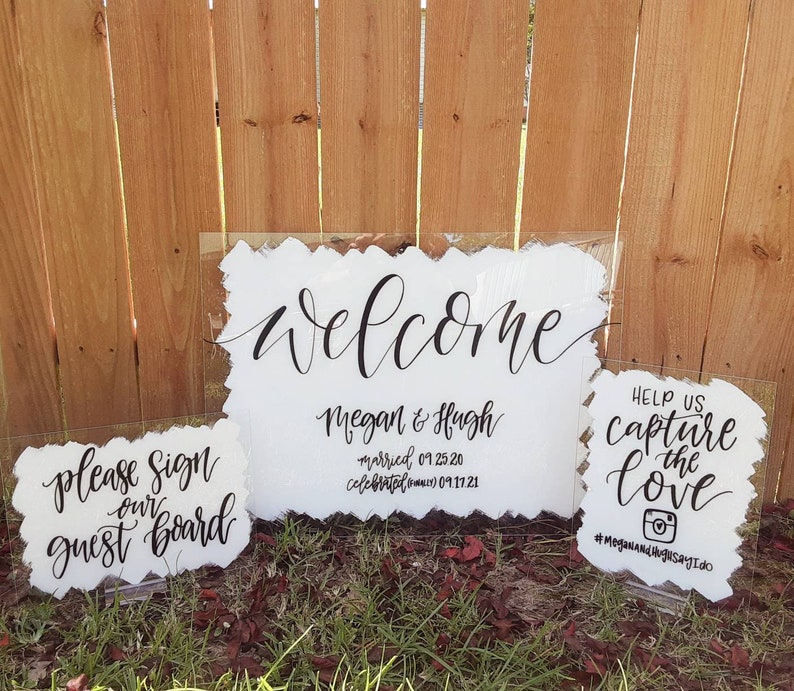 welcome
Megan & Hugh
married 09.25.20
celebrated (FINALLY) 09.17.21
please sign
our
guest board
HELP US
capture
the
love
#MEGANANDHUGHSAYIDO